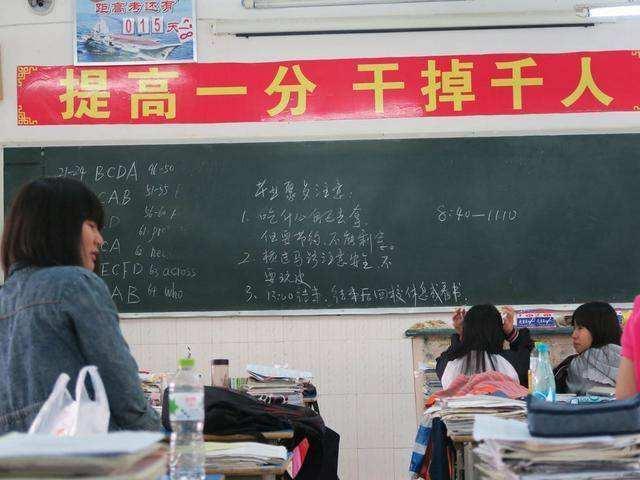 距高考还有
015天
提高一分 干掉千人
21-24 BCDA 46-50
CAB 51-55
D 56-60
CA
ECFD 63 across
AB 64 who
毕业聚多注意:
1. 吃什么自己去拿,
但要节约,不能剩这。
2. 桥过马路注意安全,不
要玩皮
3. 13:00结束,结束后回校休息或看书
8:40—1110